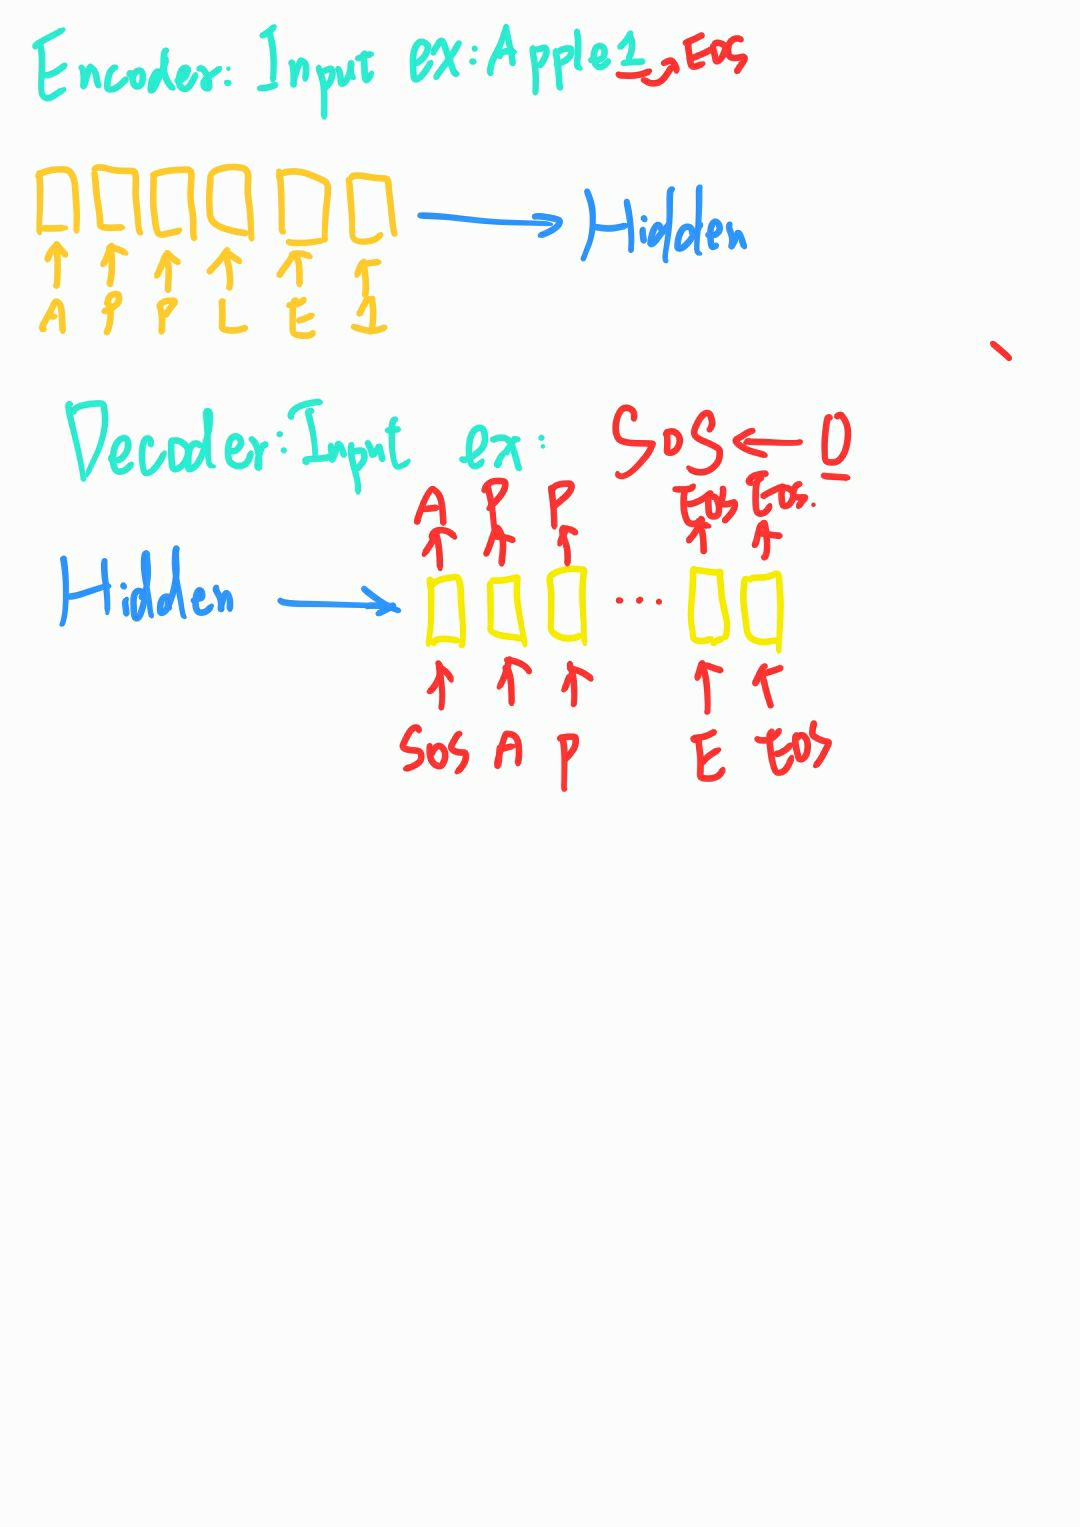 Encoder: Input ex: Apple1 EOS
A P P L E 1
Hidden
Decoder: Input ex: SOS 0
A P P ... EOS EOS.
Hidden
SOS A P E EOS